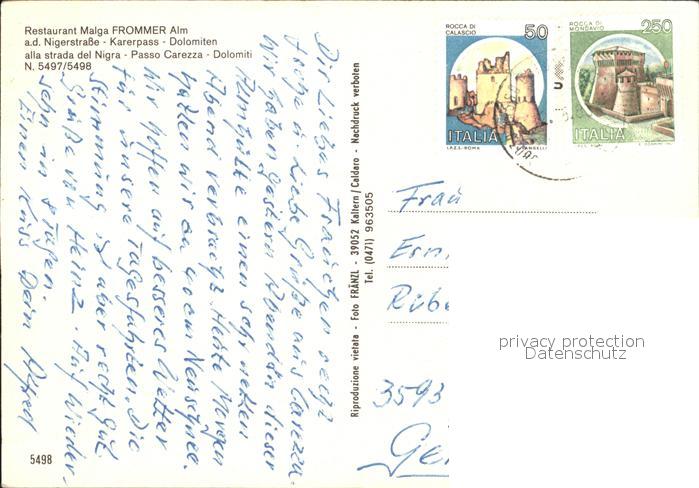 Restaurant Malga FROMMER Alm
a.d. Nigerstraße - Karerpass - Dolomiten
alla strada del Nigra - Passo Carezza - Dolomiti
N. 5497/5498
Dir Liebes Frauchen recht
frohe u. liebe Grüße aus Carezza.
Wir haben gestern Abend in dieser
Almhütte einen sehr netten
Abend verbracht. Heute Morgen
hatten wir ca 40 cm Neuschnee.
Wir hoffen auf besseres Wetter
für unsere Tagesfahrten. Die
Stimmung ist aber recht gut.
Grüße von Heinz. Auf Wieder-
sehn in
Einen Kuss Dein Alfred
5498
Riproduzione vietata - Foto FRÄNZL - 39052 Kaltern/Caldaro - Nachdruck verboten
Tel. (0471) 963505
ROCCA DI CALASCIO
50
ITALIA
I.P.Z.S.-ROMA
ROCCA DI MONDAVIO
250
ITALIA
Frau
3593
privacy protection
Datenschutz